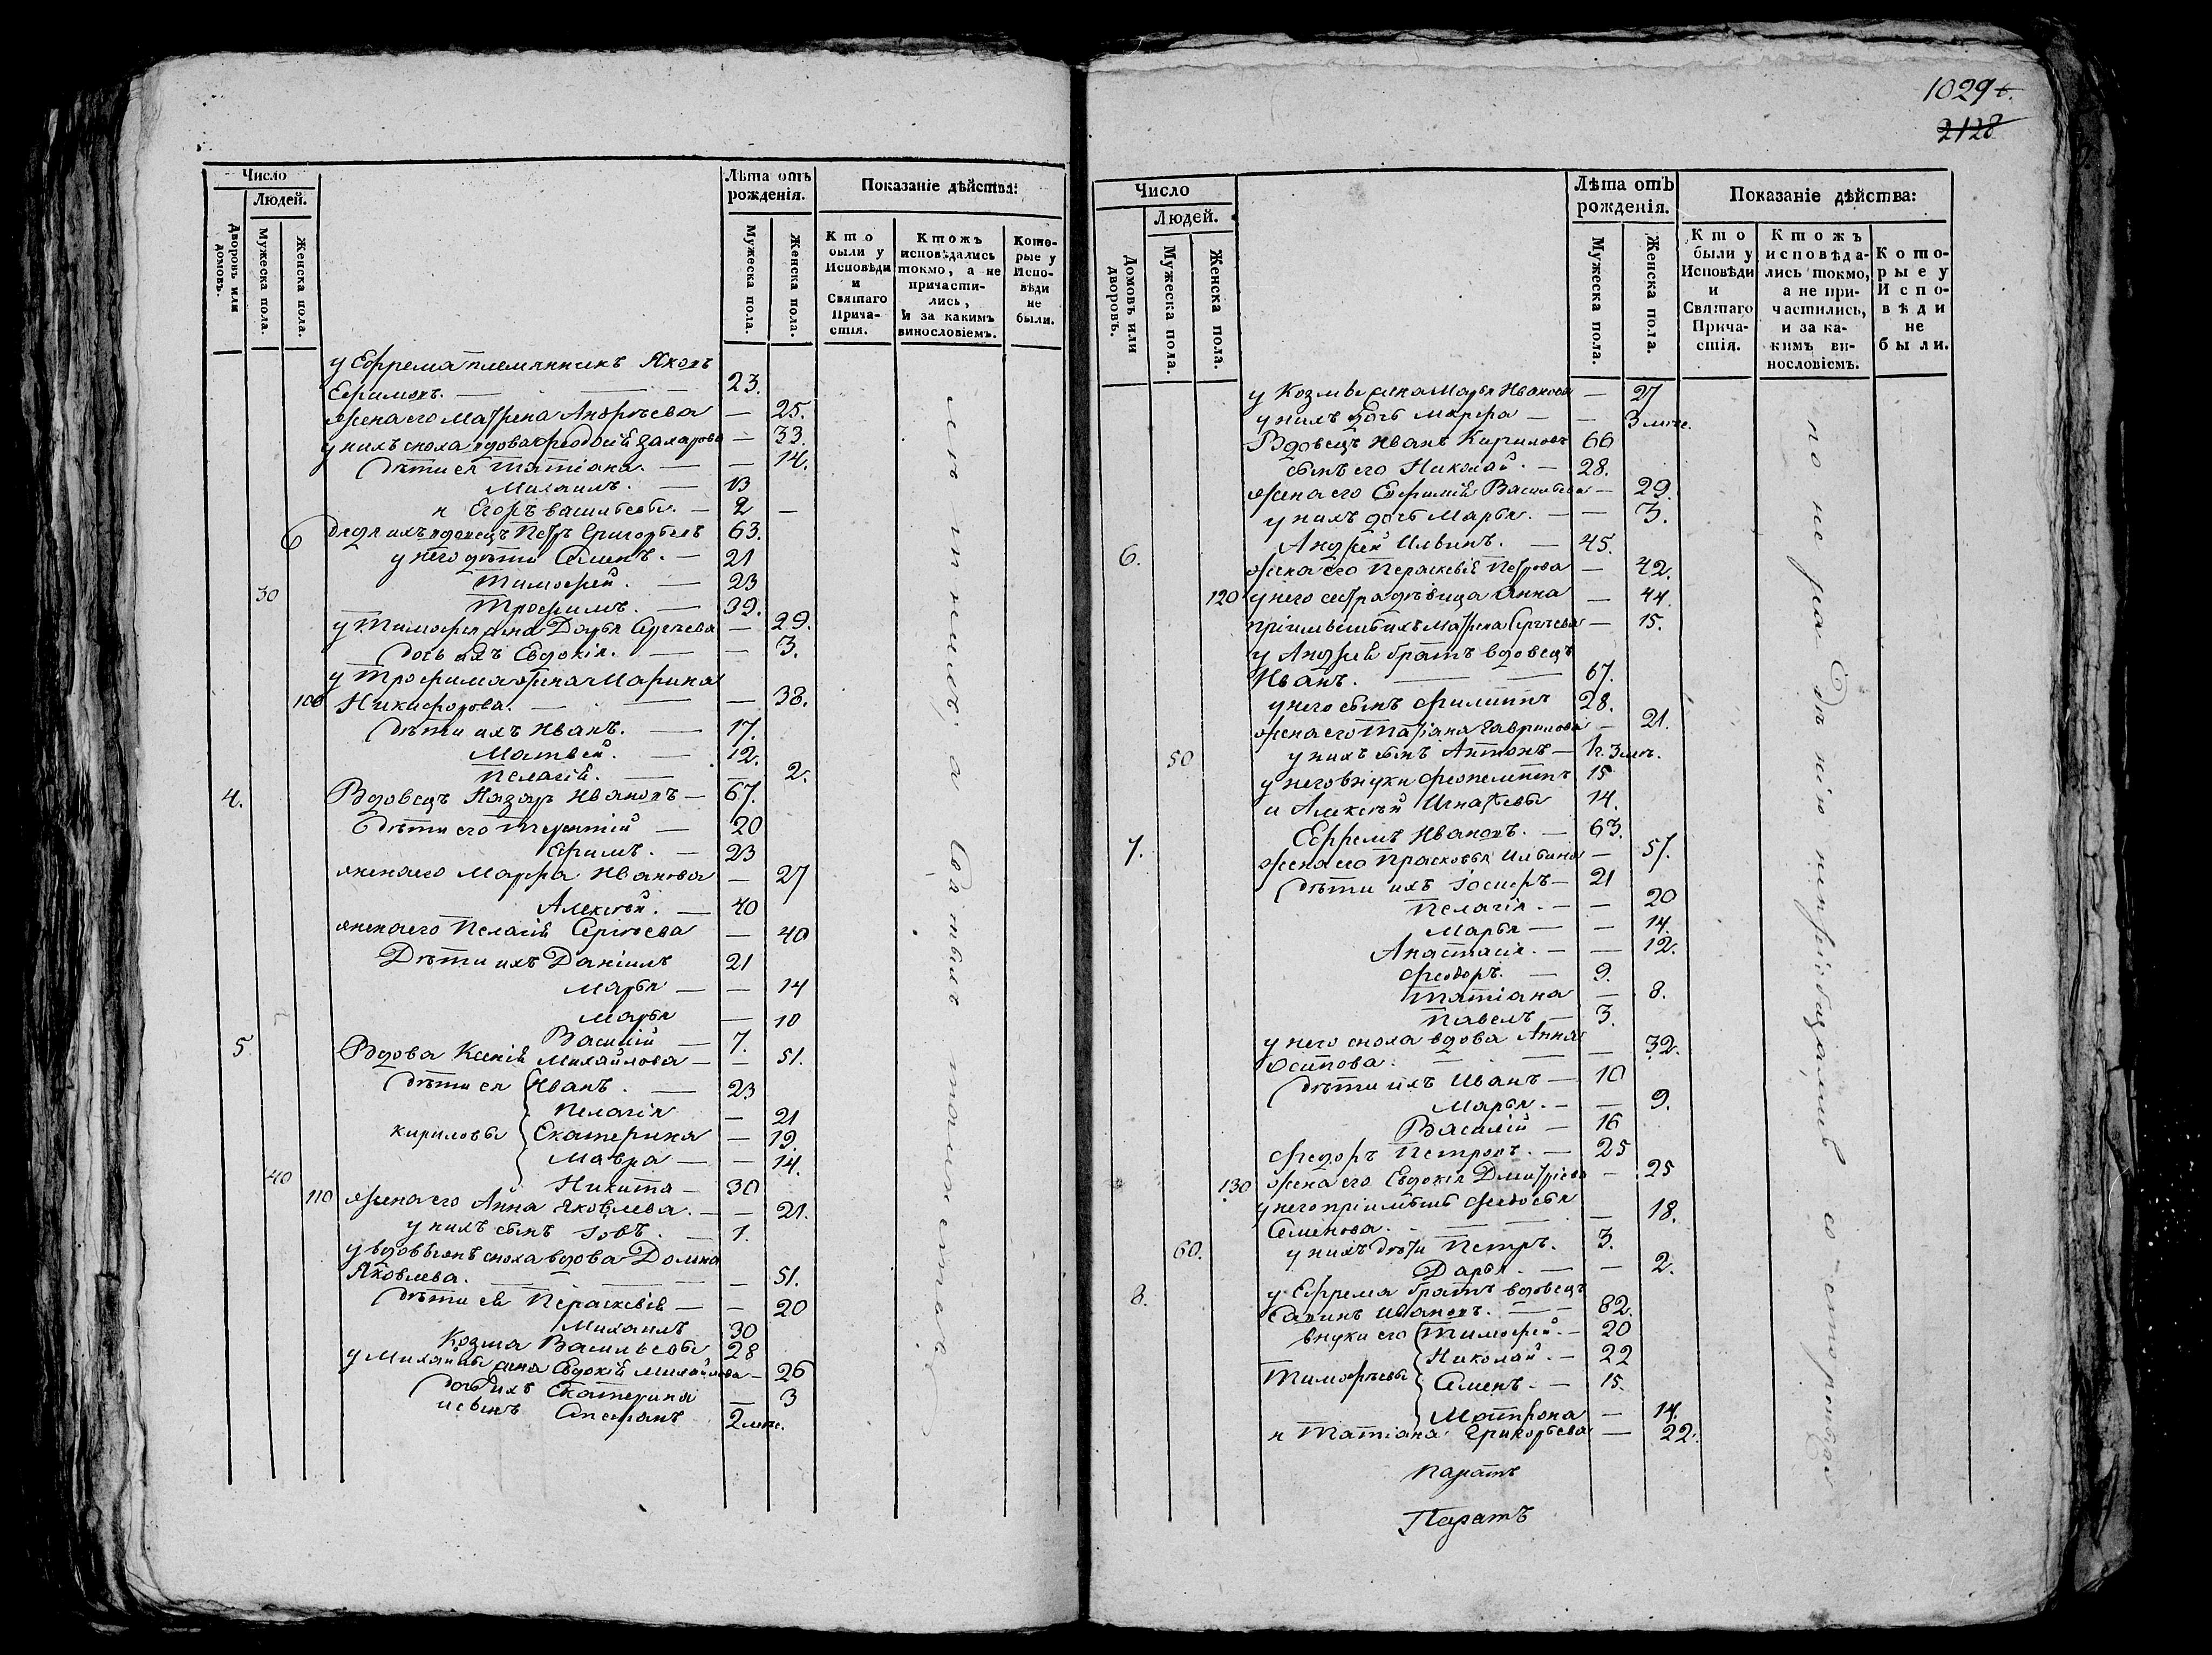 Число
Людей.
Дворовъ или домовъ.
Мужеска пола.
Женска пола.
Лѣта отъ рожденія.
Мужеска пола.
Женска пола.
Показаніе дѣйства:
Кто были у Исповѣди и Святаго Причастія.
Ктожъ исповѣдались токмо, а не причастились, и за какимъ винословіемъ.
Которые у Исповѣди не были.
у Ефрема племянникъ Яковъ
Ефимовъ. — 23.
жена его Матрена Андрѣева — 25.
у нихъ сноха вдова Феодосія Захарова — 33.
дѣти ея Татіана. — — 14.
Михаилъ. — 13
и Егоръ Васильевы. — 2 —
дядя ихъ вдовецъ Петръ Григорьевъ 63.
у него дѣти Семенъ. — 21
Тимофей. — 23
30 Трофимъ. — 39.
у Тимофея жена Дарья Сергѣева — 29.
дочь ихъ Евдокія. — — 3.
у Трофима жена Марина
100 Никифорова. — — 38.
дѣти ихъ Иванъ. — 17.
Матвей. — 12.
Пелагія. — — 2.
4. Вдовецъ Назаръ Ивановъ — 67.
дѣти его Терентій — 20
Ефимъ. — 23
жена его Марфа Иванова — 27
Алексѣй. — 40
жена его Пелагія Сергѣева — 40
Дѣти ихъ Даніилъ 21
Марья — — 14
Марья — 10
Василій — 7.
5. Вдова Ксенія Михайлова — — 51.
дѣти ея Иванъ. — 23
Пелагія — 21
Кириловы Екатерина — 19.
Мавра — — 14.
40 Никита — 30
110 жена его Анна Яковлева. — — 21.
у нихъ сынъ Іовъ. — 1.
у вдовы сноха вдова Домна
Яковлева. — — 51.
дѣти ея Параскевія — — 20
Михаилъ 30
Козма Васильевы 28
у Михайлы жена Евдокія Михайлова — 26
дочь ихъ Екатерина — 3
и сынъ Степанъ 2 мѣс.
1029
2128
Число
Людей.
Домовъ или дворовъ.
Мужеска пола.
Женска пола.
Лѣта отъ рожденія.
Мужеска пола.
Женска пола.
Показаніе дѣйства:
Кто были у Исповѣди и Святаго Причастія.
Ктожъ исповѣдались токмо, а не причастились, и за какимъ винословіемъ.
Которые у Исповѣди не были.
у Козмы жена Марья Иванова — 27
у нихъ дочь Марфа — — 3 мѣс.
Вдовецъ Иванъ Кириловъ 66
сынъ его Николай. — 28.
жена его Ефимія Васильева — 29.
у нихъ дочь Марья. — — 3.
6. Андрей Ильинъ. — 45.
жена его Параскевія Петрова — 42.
120 у него сестра дѣвица Анна — 44.
пріимышъ ихъ Матрена Сергѣева — 15.
у Андрея братъ вдовецъ
Иванъ. — — 67.
у него сынъ Филиппъ 28.
жена его Татіана Гаврилова — 21.
50 у нихъ сынъ Антонъ — 1г. 3 мѣс.
у него внуки Феопемптъ 15
и Алексѣй Игнатьевы 14.
7. Ефремъ Ивановъ. — 63.
жена его Прасковья Ильина — 57.
дѣти ихъ Іосифъ — 21
Пелагія. — — 20
Марья — — 14.
Анастасія. — — 12.
Феодоръ. — 9.
Татіана — 8.
Павелъ — 3.
у него сноха вдова Анна
Осипова. — — 32.
дѣти ихъ Иванъ — 10
Марья. — — 9.
Василій — 16
Федоръ Петровъ. — 25
130 жена его Евдокія Дмитріева — 25
у него пріимышъ Федосья
Семенова. — — 18.
60. у нихъ дѣти Петръ. 3.
Дарья. — — 2.
8. у Ефрема братъ вдовецъ
Савинъ Ивановъ. — 82.
внуки его Тимофей. — 20
Николай. — 22
Тимофѣевы Семенъ. — 15.
Матрона — 14.
и Татіана Григорьева — 22.
Паратъ
Паратъ